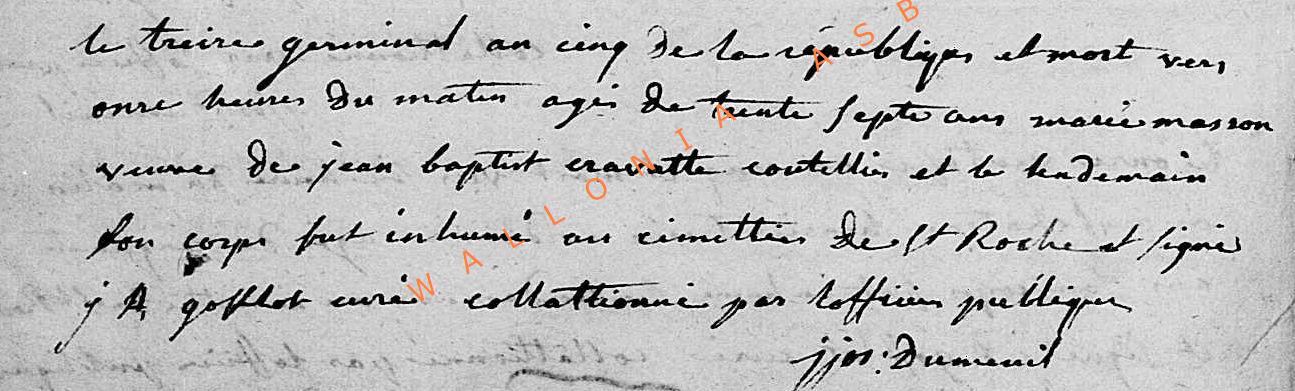 le treize germinal an cinq de la républiques et mort vers
onze heures du matin agés de trente septe ans marie masson
veuve de jean baptist cravatte coutellier et le lendemain
son corps fut inhumé au cimettier de St Roche et signé
j A gofflot curé collattionné par lofficier publique
jjos: Dumenil
WALLONIA ASB